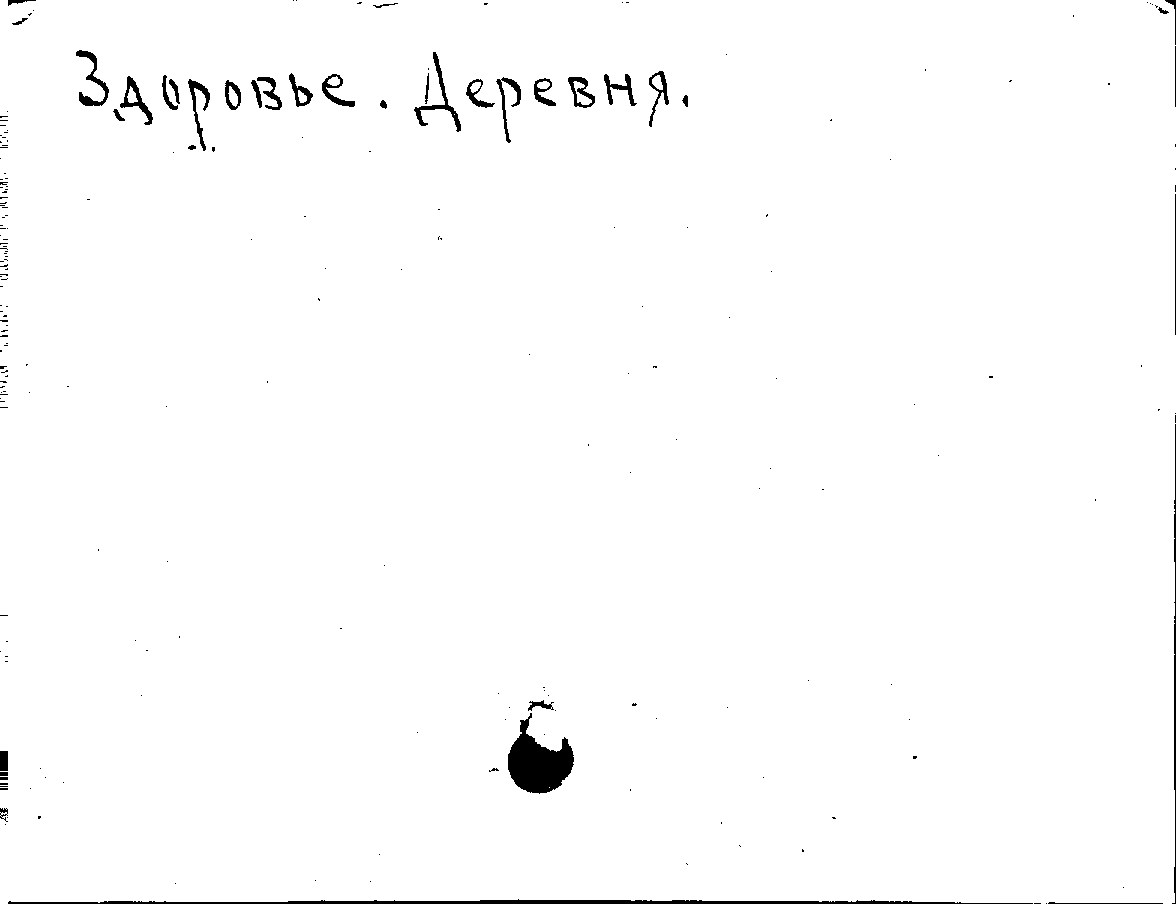 Здоровье. Деревня.